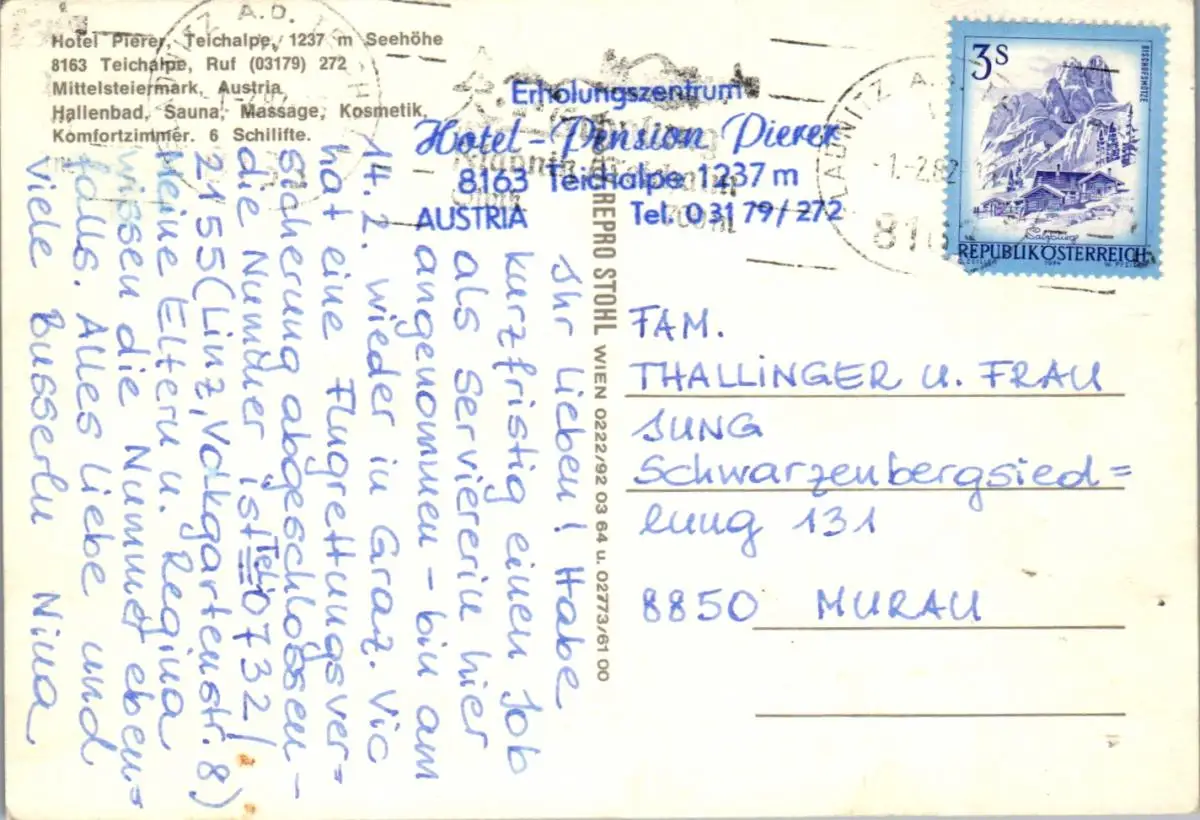 Hotel Pierer, Teichalpe, 1237 m Seehöhe
8163 Teichalpe, Ruf (03179) 272
Mittelsteiermark, Austria
Hallenbad, Sauna, Massage, Kosmetik,
Komfortzimmer. 6 Schilifte.
Erholungszentrum
Hotel-Pension Pierer
8163 Teichalpe 1237 m
AUSTRIA Tel. 03179/272
LADNITZ A.D.
-1.-2.82
3 S
BISCHOFSMÜTZE
Salzburg
REPUBLIK ÖSTERREICH
1974
REPRO STOHL WIEN 0222/92 03 64 u. 02773/61 00
Ihr Lieben! Habe
kurzfristig einen Job
als Serviererin hier
angenommen - bin am
14. 2. wieder in Graz. Vic
hat eine Flugrettungsver=
sicherung abgeschlossen -
die Nummer ist Tel. 0732/
2155 (Linz, Volksgartenstr. 8)
Meine Eltern u. Regina
wissen die Nummer eben=
falls. Alles Liebe und
viele Busserln Nina
FAM.
THALLINGER U. FRAU
JUNG
Schwarzenbergsied=
lung 131
8850 MURAU